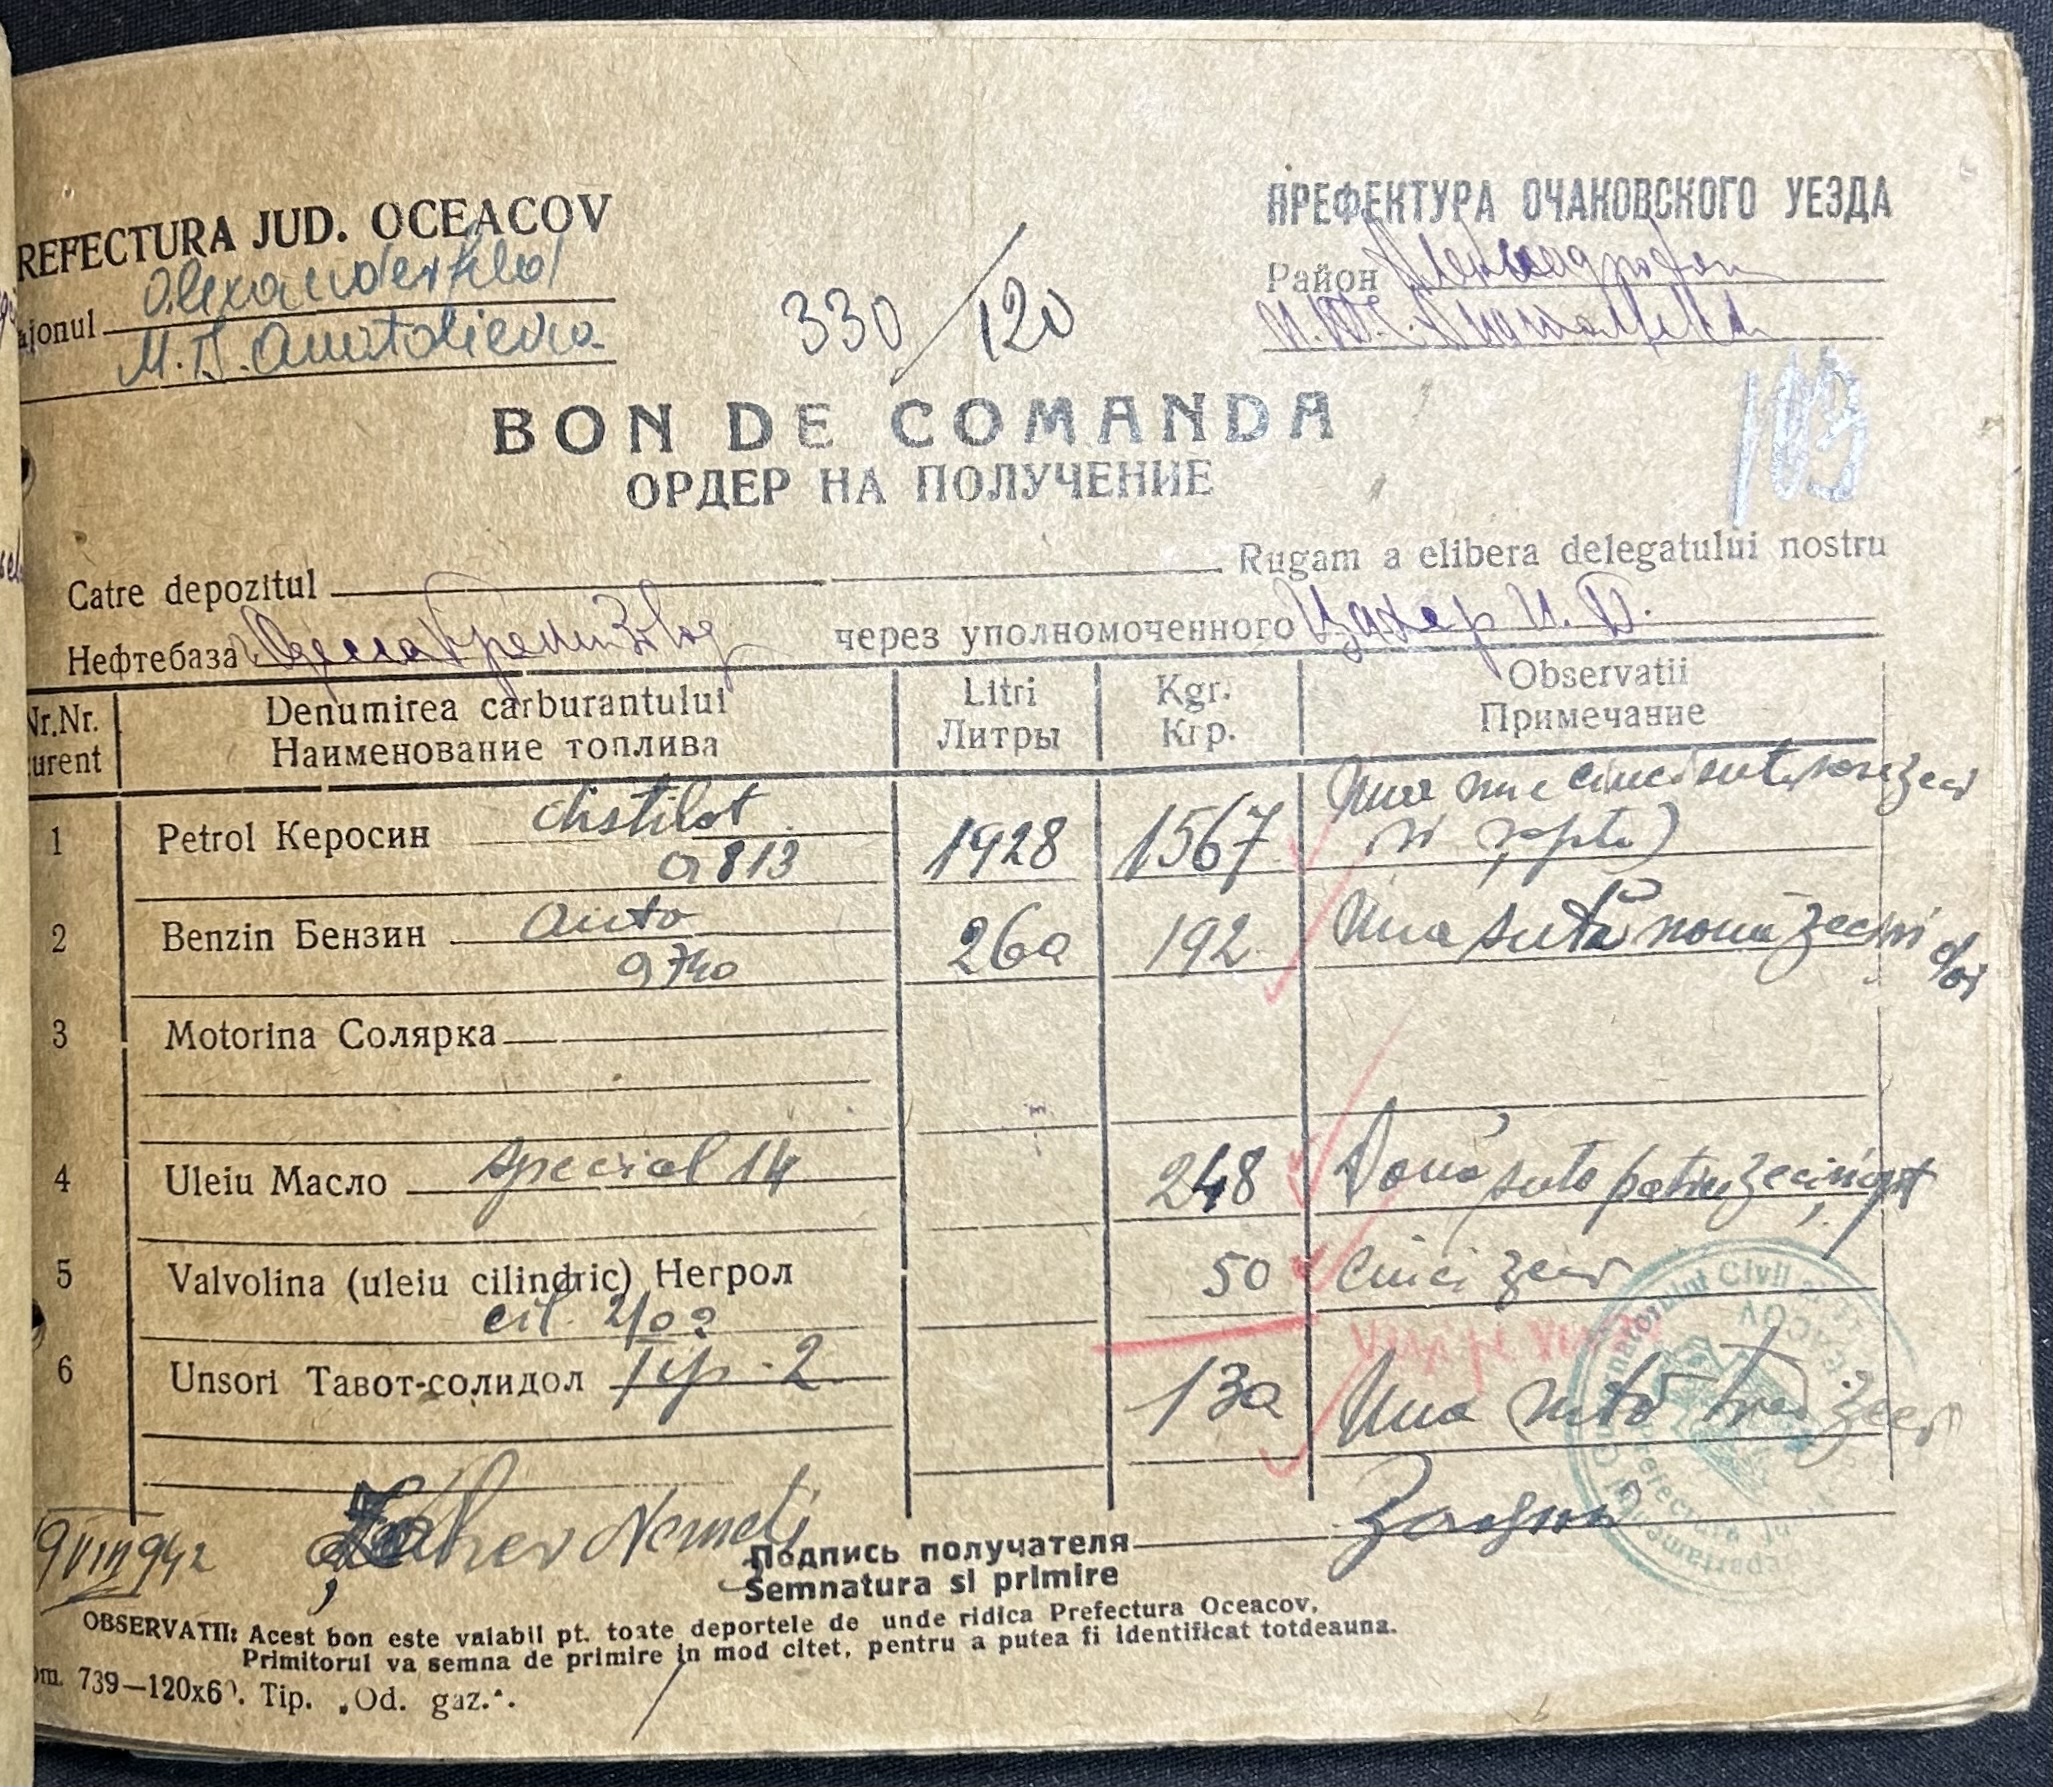 REFECTURA JUD. OCEACOV
ПРЕФЕКТУРА ОЧАКОВСКОГО УЕЗДА
ajonul Alexanderfeld
M.T.S. Anatolievca
330/120
Район
BON DE COMANDA
ОРДЕР НА ПОЛУЧЕНИЕ
103
Catre depozitul Rugam a elibera delegatului nostru
Нефтебаза через уполномоченного Цахер И.
Nr.Nr. Denumirea carburantului Litri Kgr. Observatii
urent Наименование топлива Литры Кгр. Примечание
1 Petrol Керосин distilat 1928 1567 Una mie cinci sute sasezeci
0813 si șapte)
2 Benzin Бензин auto 260 192 Una sută nouăzeci si doi
0740
3 Motorina Солярка
4 Uleiu Масло special 14 248 Două sute patruzeci opt
5 Valvolina (uleiu cilindric) Негрол 50 Cinci zeci
cil.
6 Unsori Тавот-солидол Tip-2 130 Una sută trei zeci
9 VIII 942 Zaher
Подпись получателя
Semnatura si primire
OBSERVATII: Acest bon este valabil pt. toate deportele de unde ridica Prefectura Oceacov.
Primitorul va semna de primire in mod citet, pentru a putea fi identificat totdeauna.
om. 739—120x60. Tip. „Od. gaz.".